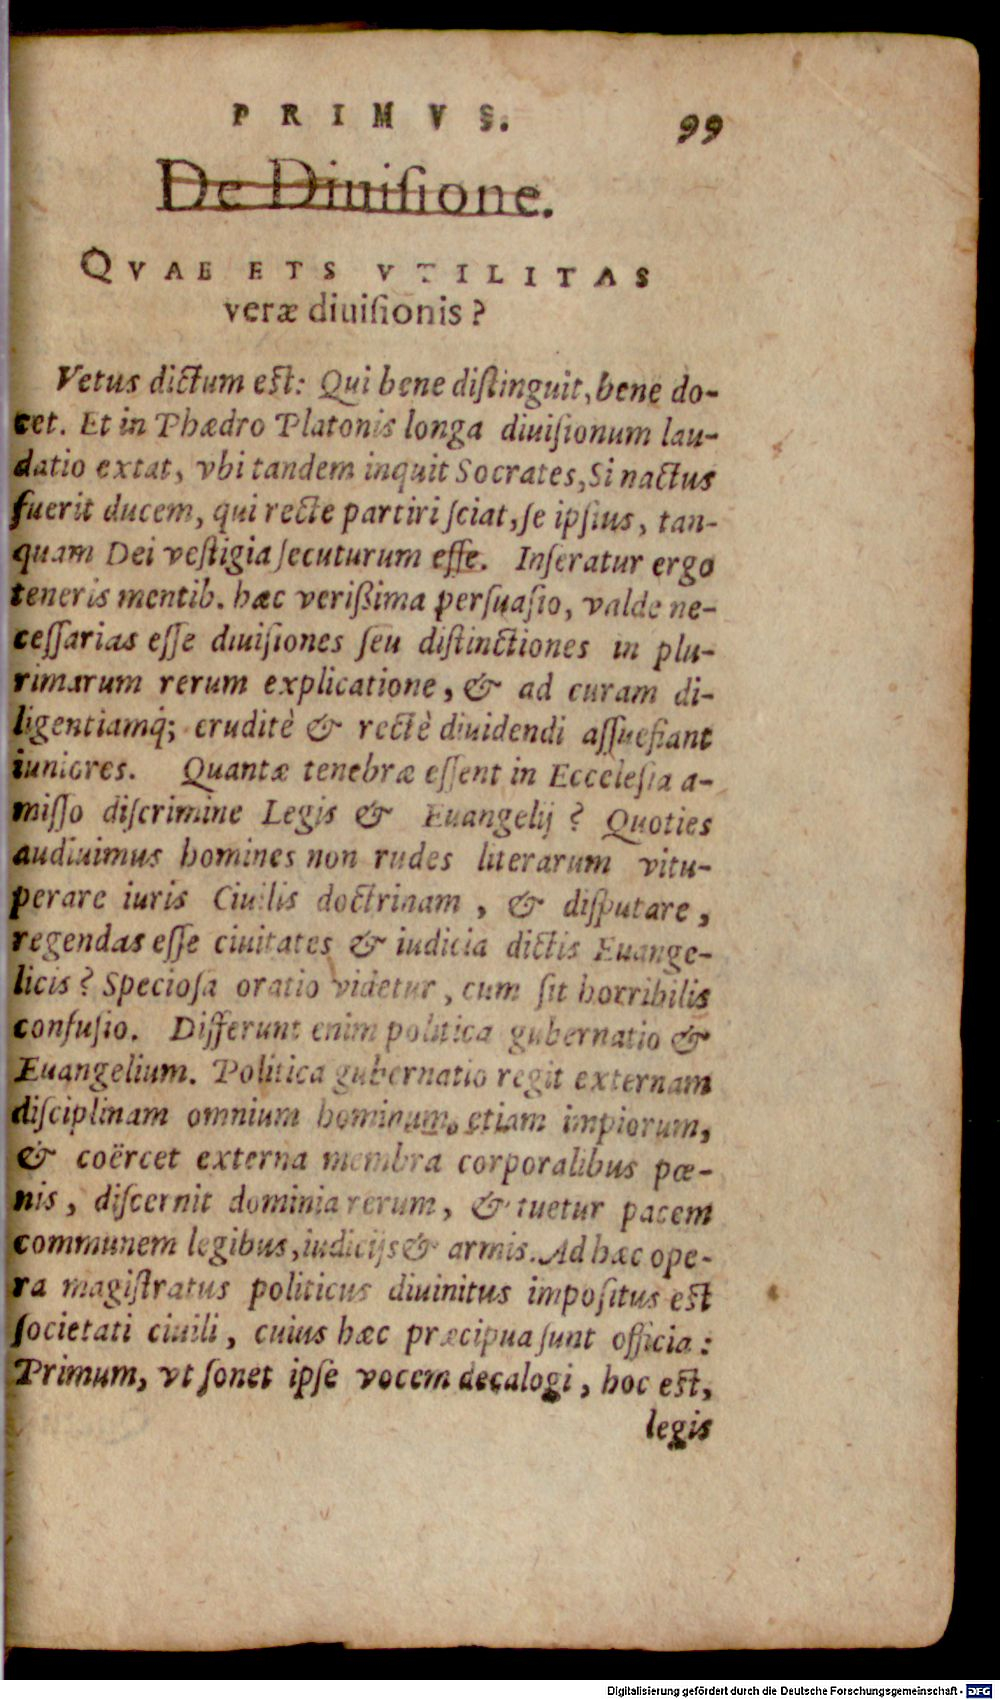 PRIMVS. 99
De Diuiſione.
QVAE ETS VTILITAS
veræ diuiſionis?
Vetus dictum eſt: Qui bene diſtinguit, bene do-
cet. Et in Phædro Platonis longa diuiſionum lau-
datio extat, vbi tandem inquit Socrates, Si nactus
fuerit ducem, qui recte partiri ſciat, ſe ipſius, tan-
quam Dei veſtigia ſecuturum eſſe. Inſeratur ergo
teneris mentib. hæc verißima perſuaſio, valde ne-
ceſſarias eſſe diuiſiones ſeu diſtinctiones in plu-
rimarum rerum explicatione, & ad curam di-
ligentiamq́; eruditè & rectè diuidendi aſſuefiant
iuniores. Quantæ tenebræ eſſent in Ecceleſia a-
miſſo diſcrimine Legis & Euangelij? Quoties
audiuimus homines non rudes literarum vitu-
perare iuris Ciuilis doctrinam, & diſputare,
regendas eſſe ciuitates & iudicia dictis Euange-
licis? Specioſa oratio videtur, cum ſit horribilis
confuſio. Differunt enim politica gubernatio &
Euangelium. Politica gubernatio regit externam
diſciplinam omnium hominum, etiam impiorum,
& coërcet externa membra corporalibus pœ-
nis, diſcernit dominia rerum, & tuetur pacem
communem legibus, iudicijs & armis. Ad hæc ope-
ra magiſtratus politicus diuinitus impoſitus eſt
ſocietati ciuili, cuius hæc præcipua ſunt officia:
Primum, vt ſonet ipſe vocem decalogi, hoc eſt,
legis
Digitalisierung gefördert durch die Deutsche Forschungsgemeinschaft - DFG